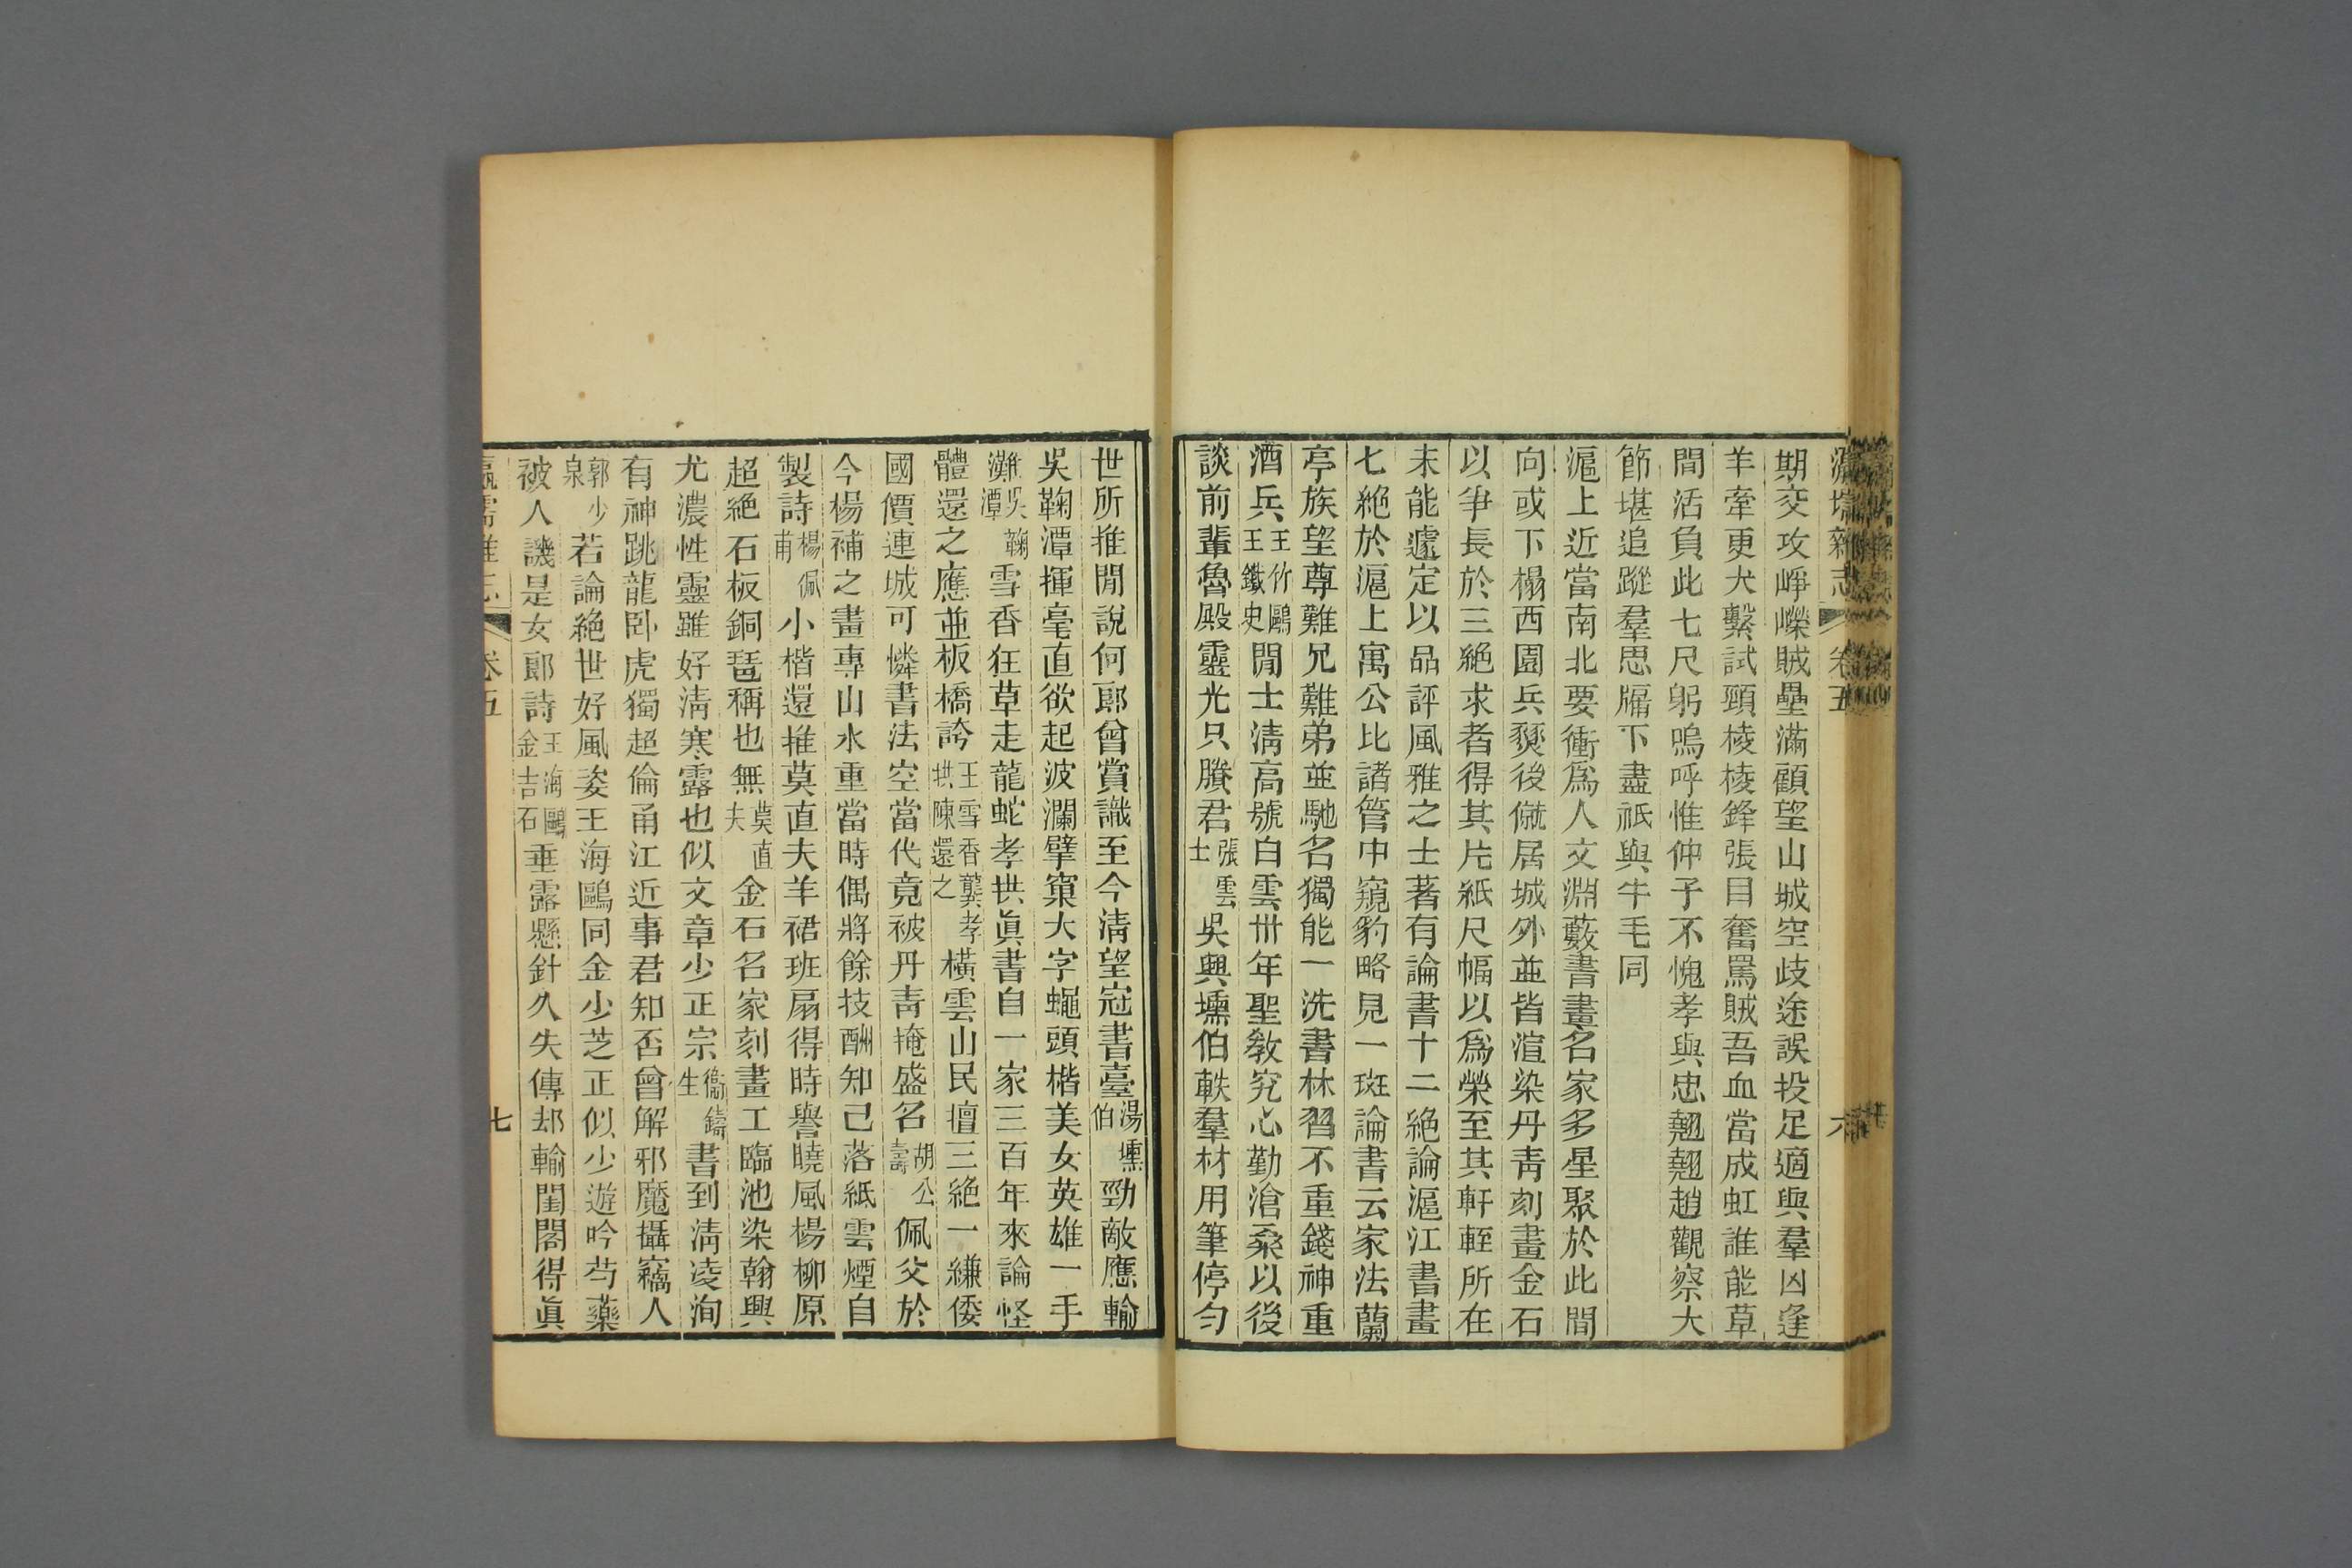 瀛壖雜志 卷五 六
期交攻崢嶸賊壘滿顧望山城空歧途誤投足適與羣凶逢
羊牽更犬繫試頸棱棱鋒張目奮罵賊吾血當成虹誰能草
間活負此七尺躬嗚呼惟仲子不愧孝與忠翹翹趙觀察大
節堪追蹤羣思牖下盡祇與牛毛同
滬上近當南北要衝爲人文淵藪書畫名家多星聚於此間
向或下榻西園兵燹後僦居城外並皆渲染丹靑刻畫金石
以爭長於三絕求者得其片紙尺幅以爲榮至其軒輊所在
未能遽定以品評風雅之士著有論書十二絕論滬江書畫
七絕於滬上寓公比諸管中窺豹略見一斑論書云家法蘭
亭族望尊難兄難弟並馳名獨能一洗書林習不重錢神重
酒兵王竹鷗王鐵史閒士淸高號白雲卅年聖敎究心勤滄桑以後
談前輩魯殿靈光只賸君張雲士吳興壎伯軼羣材用筆停勻
世所推聞說何郎曾賞識至今淸望冠書臺湯壎伯勁敵應輸
吳鞠潭揮毫直欲起波瀾擘窠大字蠅頭楷美女英雄一手
難吳鞠潭雪香狂草走龍蛇孝拱眞書自一家三百年來論怪
體還之應並板橋誇王雪香龔孝拱陳還之橫雲山民擅三絕一縑倭
國價連城可憐書法空當代竟被丹靑掩盛名胡公壽佩父於
今楊補之畫專山水重當時偶將餘技酬知己落紙雲煙自
製詩楊佩甫小楷還推莫直夫羊裙班扇得時譽曉風楊柳原
超絕石板銅琶稱也無莫直夫金石名家刻畫工臨池染翰興
尤濃性靈雖好淸寒露也似文章少正宗衞鑄生書到淸凌洵
有神跳龍臥虎獨超倫甬江近事君知否曾解邪魔攝竊人
郭少泉若論絕世好風姿王海鷗同金少芝正似少遊吟芍藥
被人譏是女郎詩王海鷗金吉石垂露懸針久失傳却輸閨閣得眞
瀛壖雜志 卷五 七